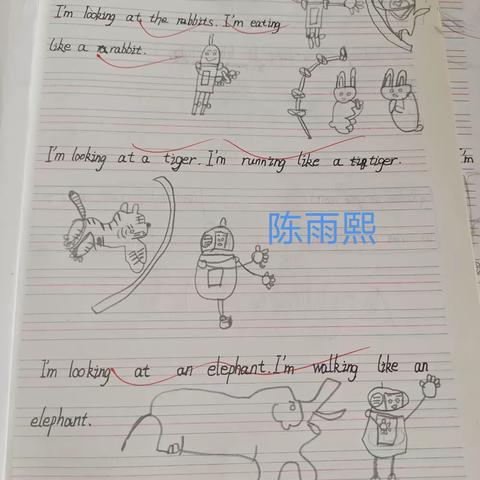 I'm looking at the rabbits. I'm eating
like a rabbit.
I'm looking at a tiger. I'm running like a tiger.
I'm
陈雨熙
I'm looking at an elephant. I'm walking like an
elephant.